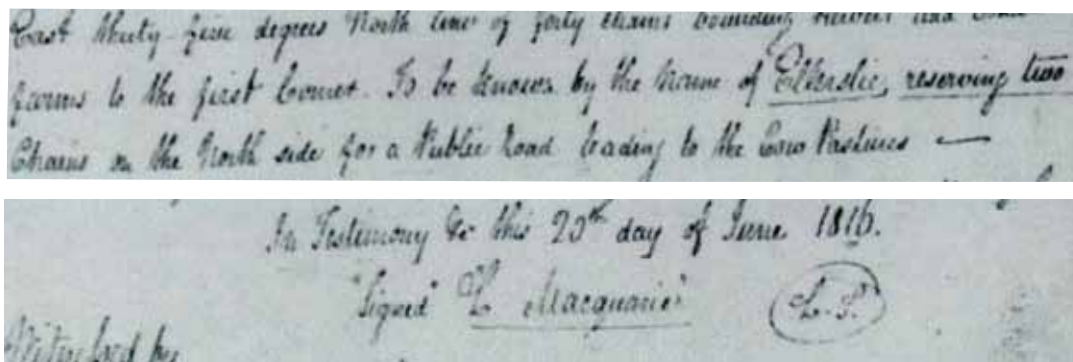 East thirty-five degrees North line of forty chains bounding and
farms to the first Corner. To be known by the name of Ellerslie, reserving two
Chains on the North side for a Public Road leading to the Cow Pastures —
In Testimony &c this 20th day of June 1816.
"Signed" L Macquarie"
L.S.
Witnessed by